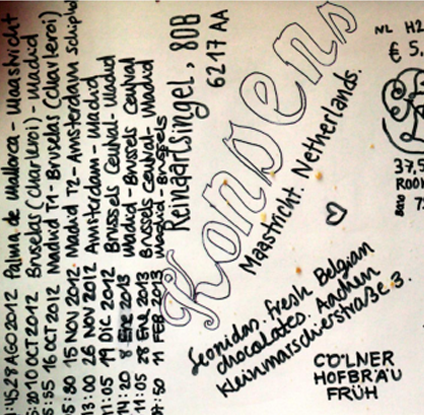 :45 28 AGO 2012 Palma de Mallorca - Maastricht
5:20 10 OCT 2012 Bruselas (Charleroi) - Madrid
5:55 16 OCT 2012 Madrid T1 - Bruselas (Charleroi)
5:50 15 NOV 2012 Madrid T2 - Amsterdam Schiphol
13:00 26 NOV 2012 Amsterdam - Madrid
1:05 19 DIC 2012 Brussels Central - Madrid
14:20 8 ENE 2013 Madrid - Brussels Central
14:05 28 ENE 2013 Brussels Central - Madrid
17:50 11 FEB 2013 Madrid - Brussels
Reinaartsingel, 80B
6217 AA
Konsens
Maastricht. Netherlands.
Leonidas. fresh Belgian
chocolates. Aachen
Kleinmarschierstraße 3.
CÖLNER
HOFBRÄU
FRÜH
NL H2
€ 5,
37,5
ROOK